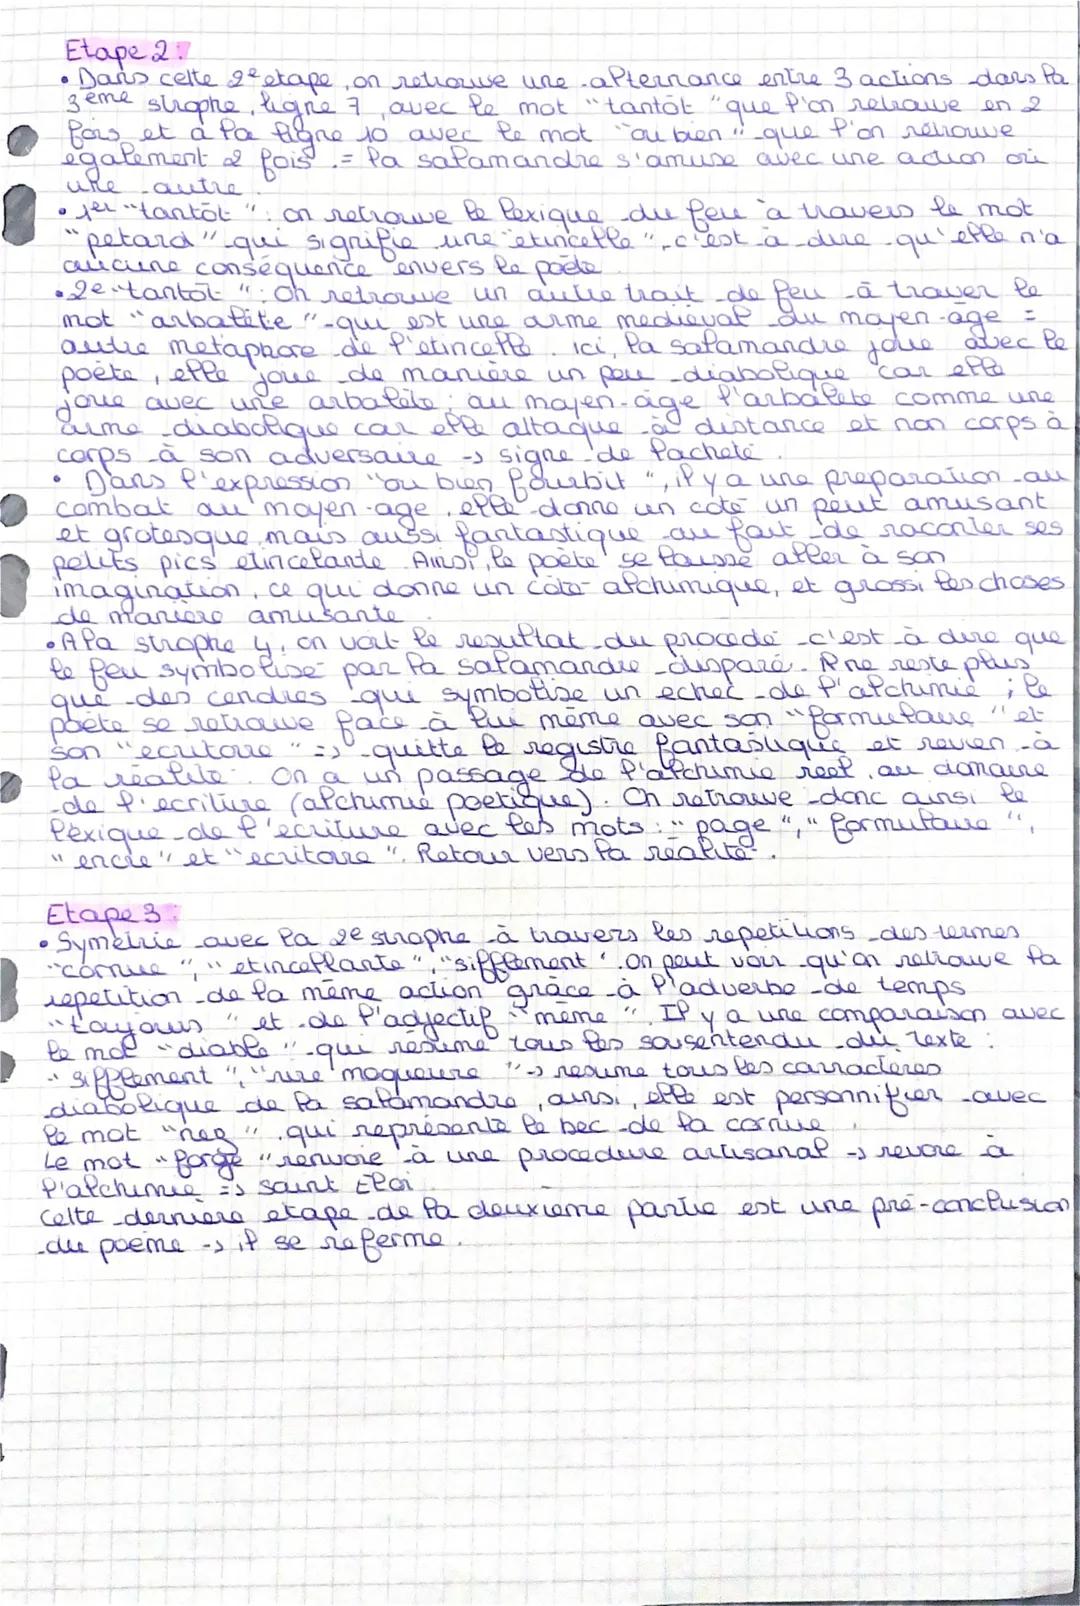 Etape 2 :
• Dans cette 2e etape, on retrouve une alternance entre 3 actions dans la
3ème strophe, ligne 7, avec le mot "tantôt" que l'on retrouve en 2
fois et à la ligne 10 avec le mot "ou bien" que l'on retrouve
egalement 2 fois. = la salamandre s'amuse avec une action ou
une autre.
• 1er "tantôt" : on retrouve le lexique du feu à travers le mot
"petard" qui signifie une "etincelle", c'est à dire qu'elle n'a
aucune conséquence envers le poète
• 2e "tantôt" : On retrouve un autre trait de feu à traver le
mot "arbalète" qui est une arme medieval du moyen-âge =
autre metaphore de l'etincelle. ici, la salamandre joue avec le
poète, elle joue de manière un peu diabolique car elle
joue avec une arbalète ; au moyen-âge l'arbalète comme une
arme diabolique car elle attaque à distance et non corps à
corps à son adversaire -> signe de lacheté.
• Dans l'expression "ou bien fourbit", il y a une preparation au
combat au moyen-age, elle donne un coté un peut amusant
et grotesque mais aussi fantastique au fait de raconter ses
petits pics etincelante. Ainsi, le poète se laisse aller à son
imagination, ce qui donne un côté alchimique, et grossi les choses
de manière amusante
• A la strophe 4, on voit le resultat du procedé c'est à dire que
le feu symbolisé par la salamandre disparé. Il ne reste plus
que des cendres qui symbolise un echec de l'alchimie ; le
poète se retrouve face à lui même avec son "formulaire" et
son "ecritoire" => quitte le registre fantastique et revien à
la réalité. On a un passage de l'alchimie reel, au domaine
de l'ecriture (alchimie poetique). On retrouve donc ainsi le
lexique de l'écriture avec les mots : "page", "formulaire",
"encre" et "ecritoire". Retour vers la réalité.
Etape 3 :
• Symétrie avec la 2e strophe à travers les repetitions des termes
"cornue", "etincellante", "sifflement". On peut voir qu'on retrouve la
repetition de la même action grâce à l'adverbe de temps
"toujours" et de l'adjectif "même". Il y a une comparaison avec
le mot "diable" qui résume tous les sousentendu du texte :
"sifflement", "rire moqueure" -> resume tous les carractères
diabolique de la salamandre, ainsi, elle est personnifier avec
le mot "nez", qui représente le bec de la cornue.
Le mot "forge" renvoie à une procedure artisanal -> revoie à
l'alchimie => saint Eloi
Cette derniere etape de la deuxieme partie est une pré-conclusion
du poème -> il se referme.